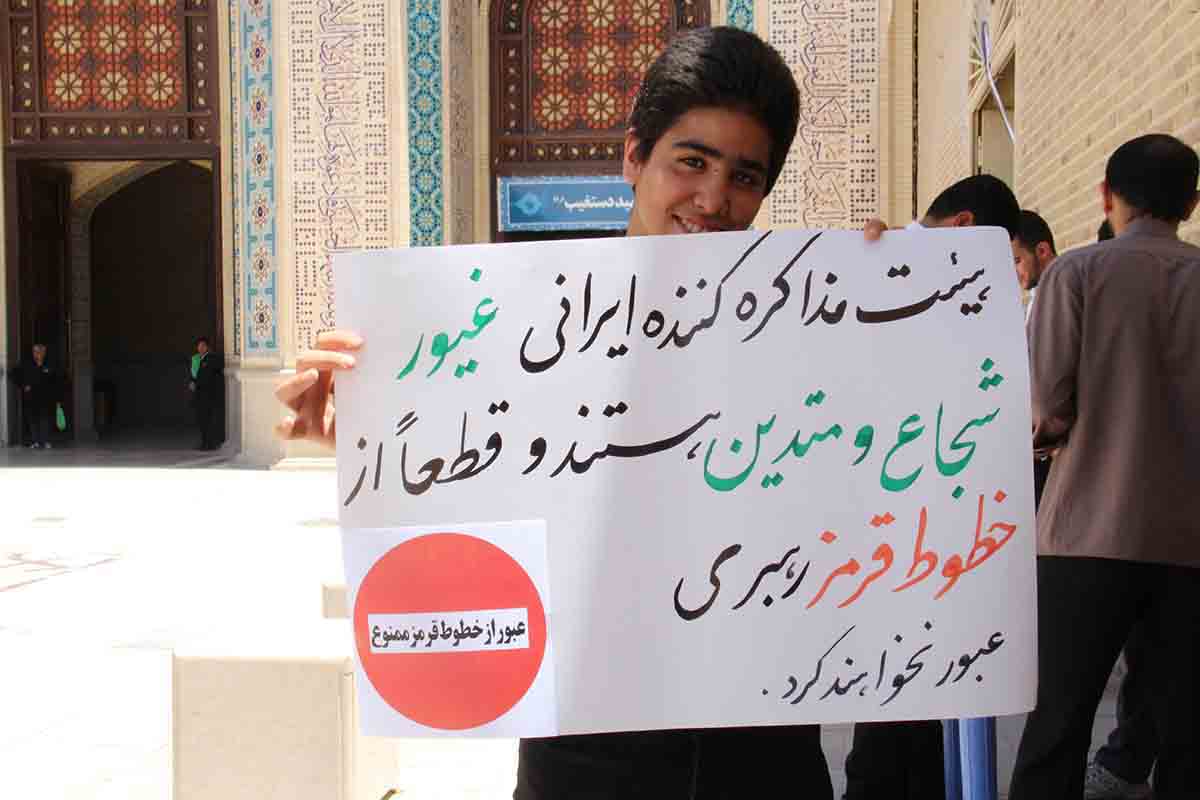 ید دستغیب
هیئت مذاکره کننده ایرانی غیور
شجاع و متدین هستند و قطعاً از
خطوط قرمز رهبری
عبور نخواهند کرد.
عبور از خطوط قرمز ممنوع